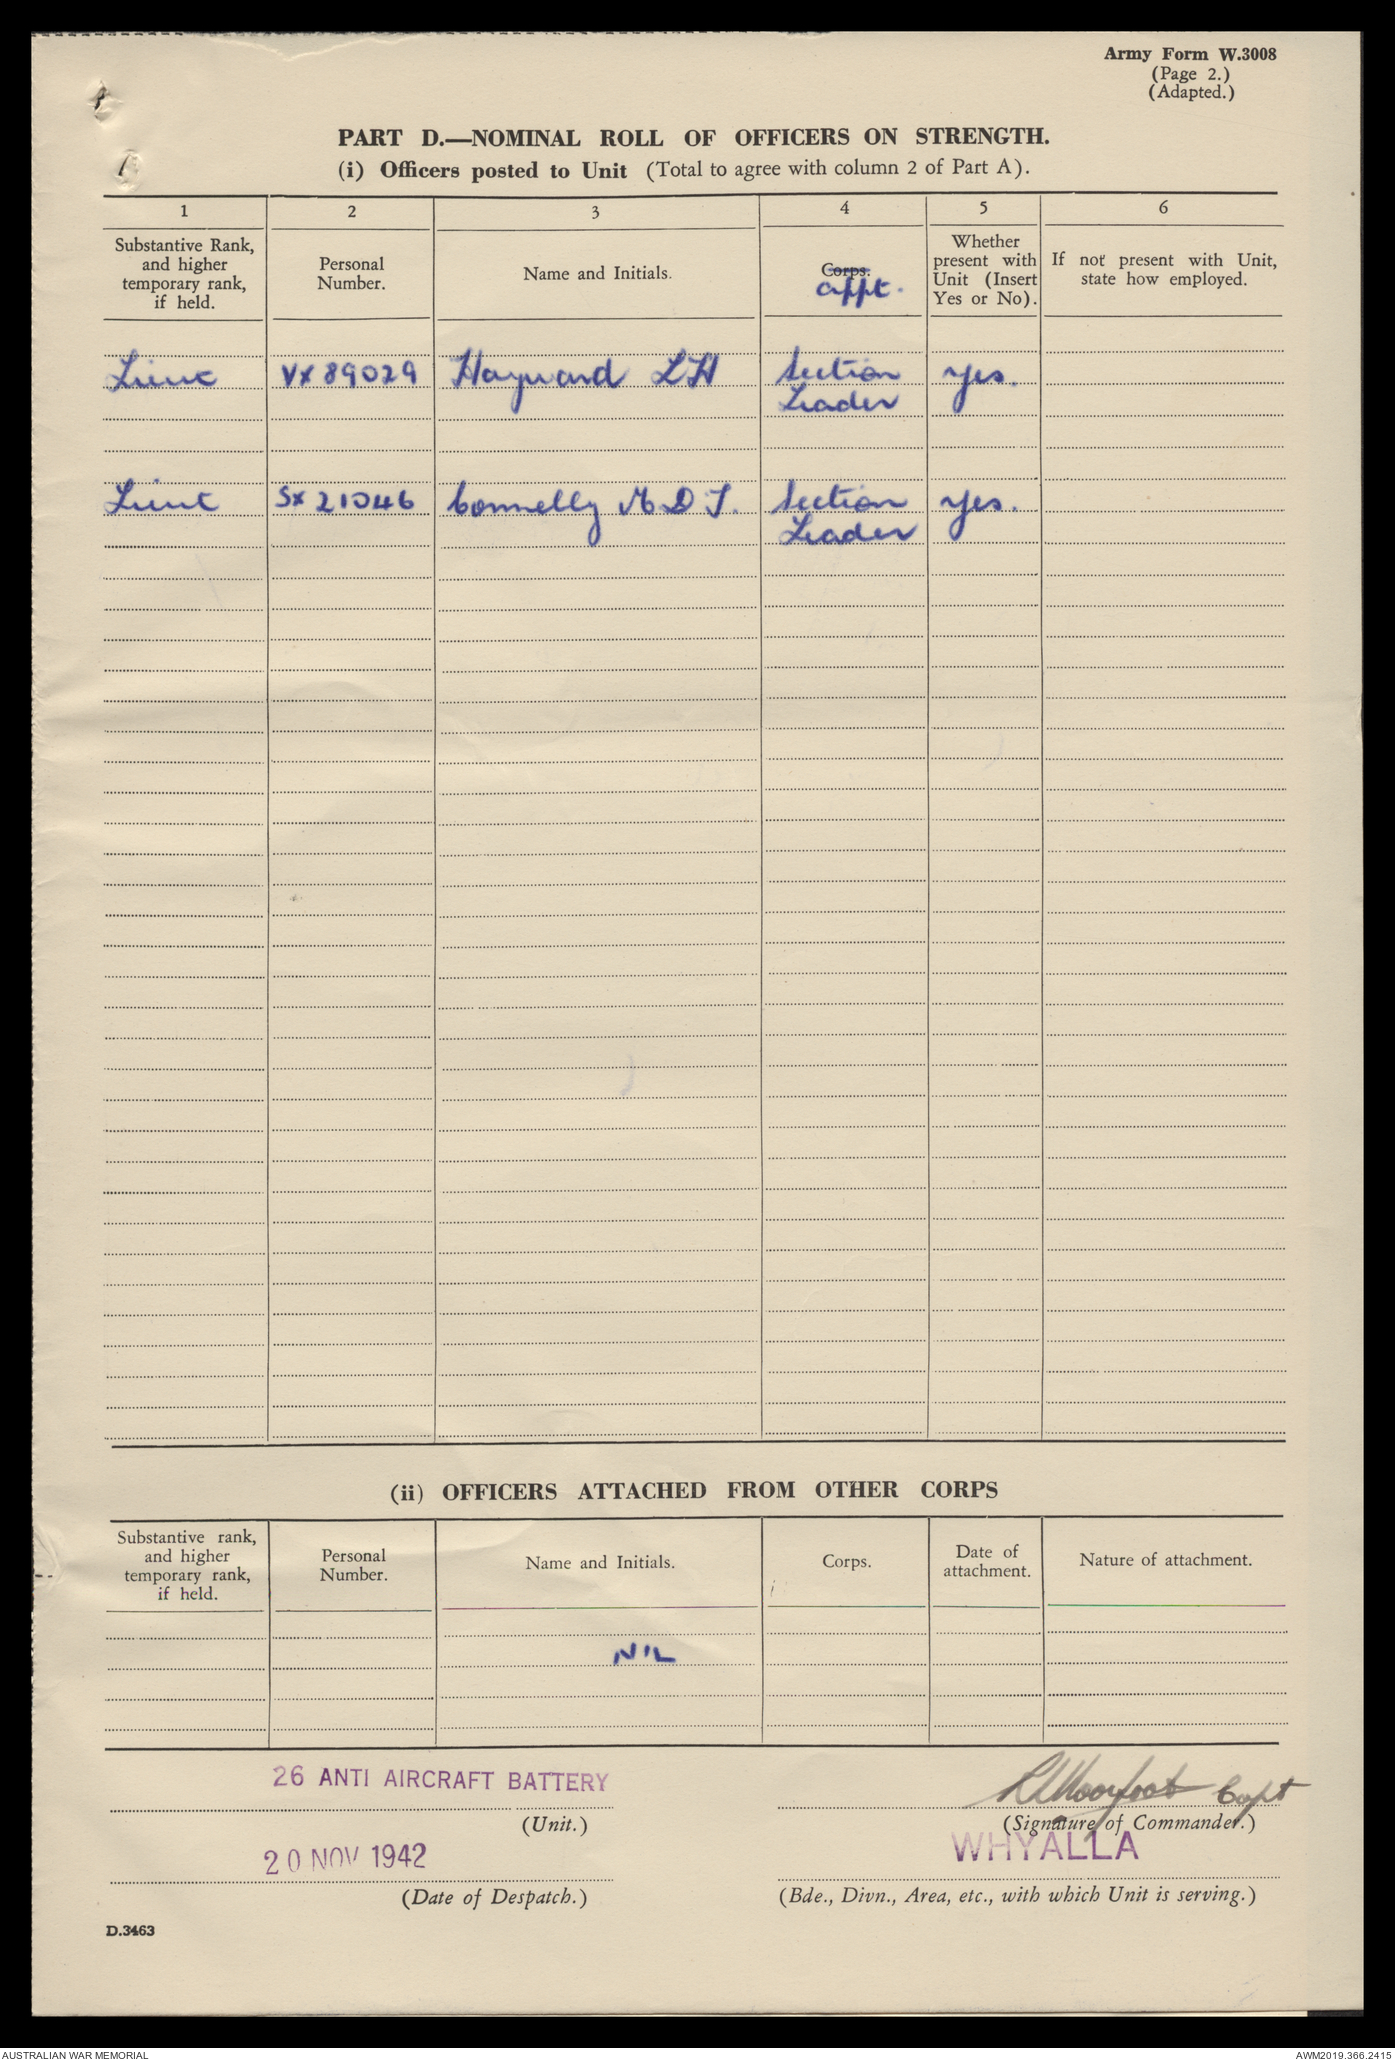 Army Form W.3008
(Page 2.)
(Adapted.)
PART D.—NOMINAL ROLL OF OFFICERS ON STRENGTH.
(i) Officers posted to Unit (Total to agree with column 2 of Part A).
1 2 3 4 5 6
Substantive Rank, and higher temporary rank, if held.
Personal Number.
Name and Initials.
Corps.
appt.
Whether present with Unit (Insert Yes or No).
If not present with Unit, state how employed.
Lieut VX89029 Hayward LH Section Leader yes.
Lieut SX21046 Connelly M D J. Section Leader yes.
(ii) OFFICERS ATTACHED FROM OTHER CORPS
Substantive rank, and higher temporary rank, if held.
Personal Number.
Name and Initials.
Corps.
Date of attachment.
Nature of attachment.
NIL
26 ANTI AIRCRAFT BATTERY
(Unit.)
Capt
(Signature of Commander.)
20 NOV 1942
(Date of Despatch.)
WHYALLA
(Bde., Divn., Area, etc., with which Unit is serving.)
D.3463
AUSTRALIAN WAR MEMORIAL
AWM2019.366.2415